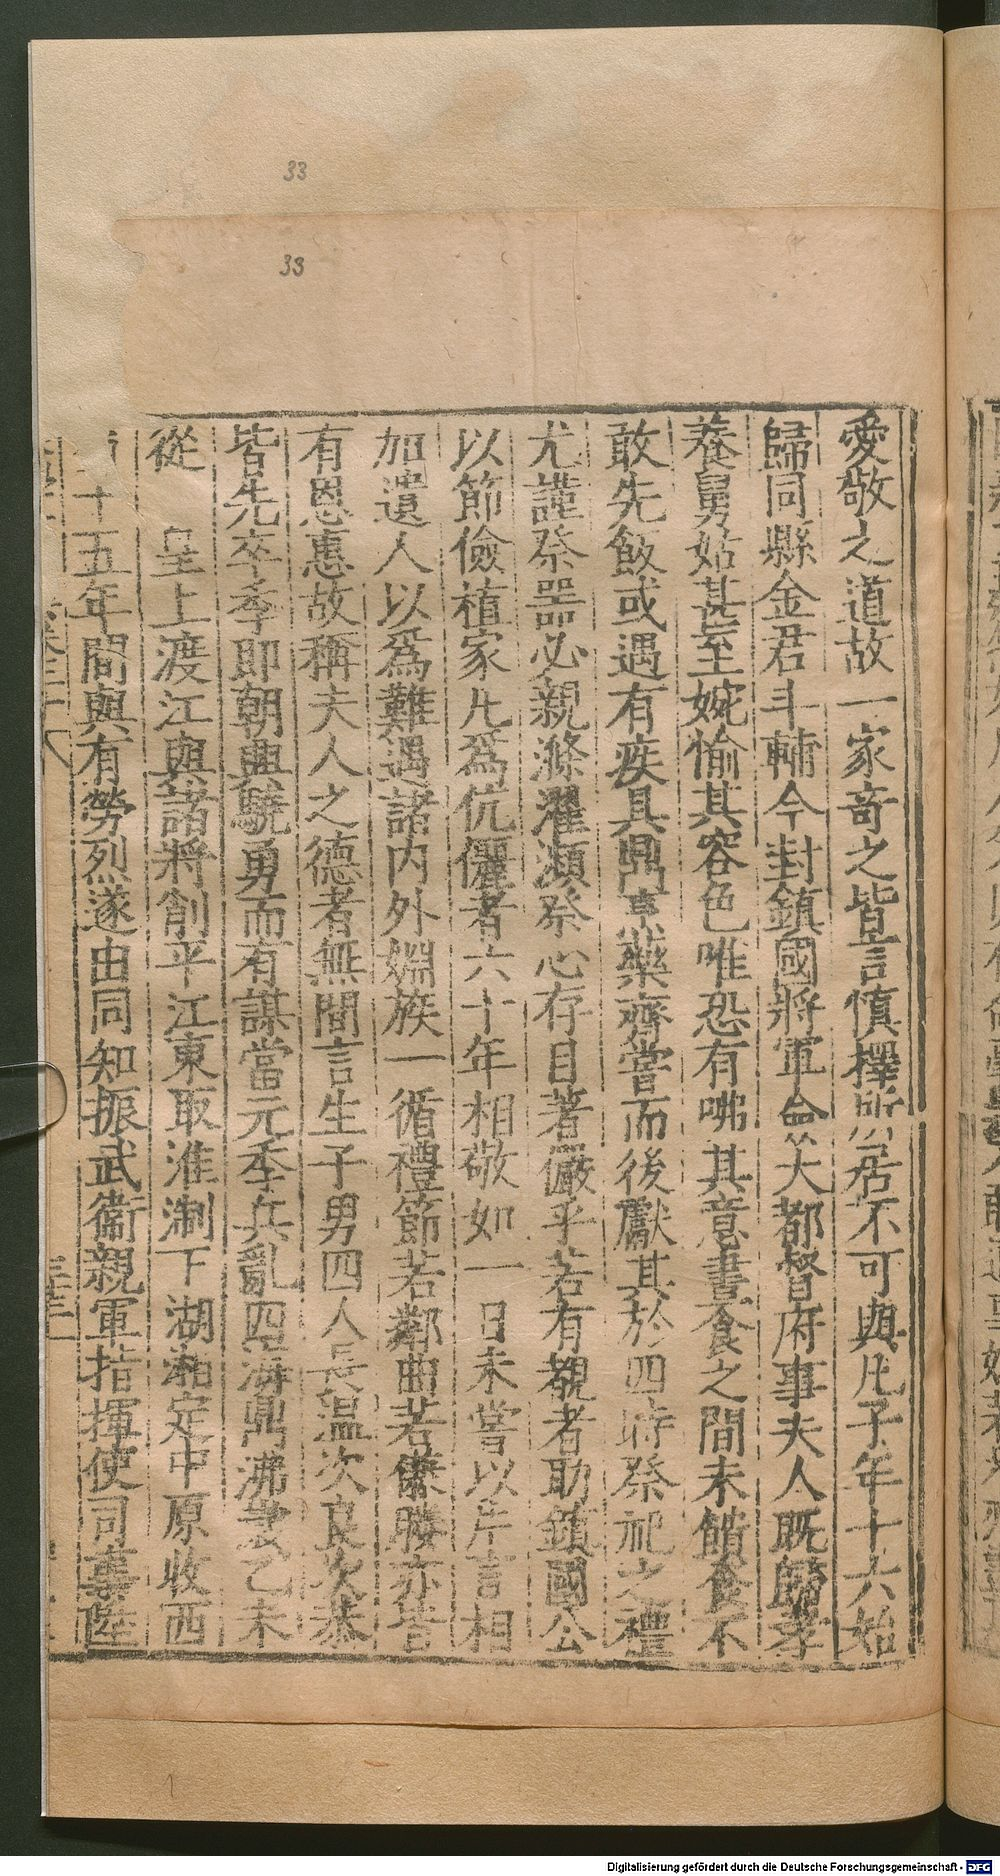 33
33
愛敬之道故一家竒之皆言慎擇所居不可與凡子年十六始
歸同縣金君斗輔今封鎮國將軍僉大都督府事夫人既歸孝
養舅姑甚至婉愉其容色唯恐有咈其意晝食之間未饋食不
敢先飯或遇有疾具鼎烹藥齊嘗而後獻其於四時祭祀之禮
尤謹祭器必親滌濯瀕祭心存目著儼乎若有覩者助鎮國公
以節儉植家凡爲伉儷者六十年相敬如一日未嘗以片言相
加遺人以爲難遇諸内外姻族一循禮節若鄰曲若媵亦皆
有恩惠故稱夫人之德者無間言生子男四人長温次良次恭
皆先卒季即朝興驍勇而有謀當元季兵亂四海鼎沸歲乙未
從 皇上渡江與諸將削平江東取淮淛下湖湘定中原收西
十五年間與有勞烈遂由同知振武衞親軍指揮使司事陞
Digitalisierung gefördert durch die Deutsche Forschungsgemeinschaft - DFG